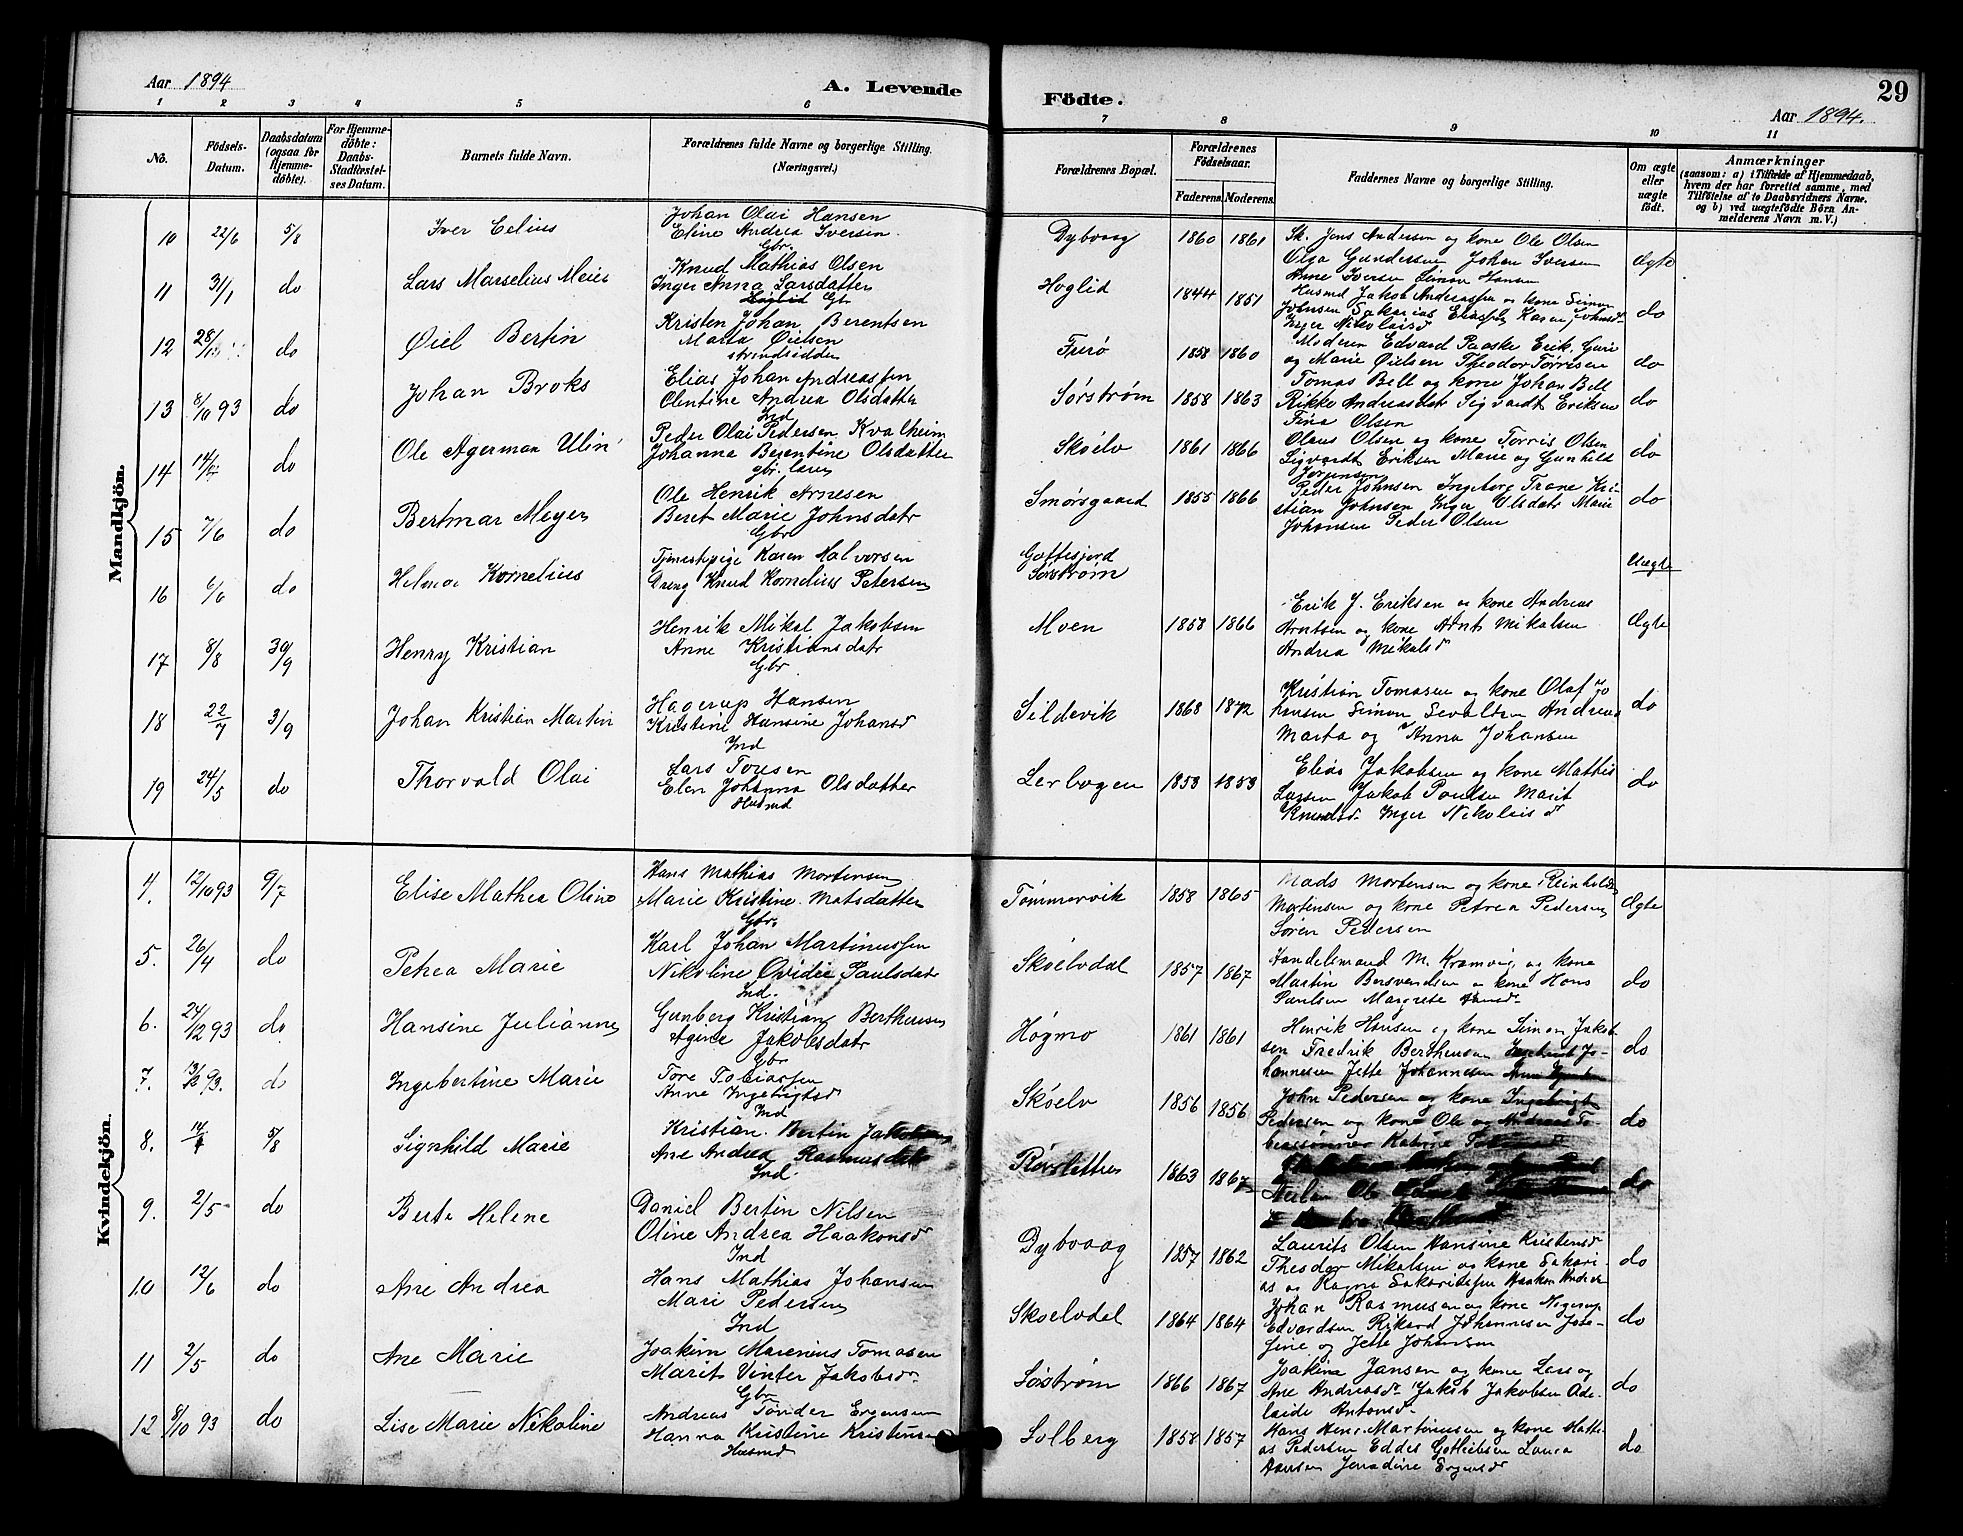 Aar 1894
A. Levende
Födte.
29
Aar 1894.
1 2 3 4 5 6 7 8 9 10 11
No.
Födsels-
Datum.
Daabsdatum
(ogsaa for
Hjemme-
döbte).
For Hjemme-
döbte:
Daabs-
Stadfæstel-
ses Datum.
Barnets fulde Navn.
Forældrenes fulde Navne og borgerlige Stilling.
(Næringsvei.)
Forældrenes Bopæl.
Forældrenes
Födselsaar.
Faderens. Moderens.
Faddernes Navne og borgerlige Stilling.
Om ægte
eller
uægte
födt.
Anmærkninger
(saasom: a) i Tilfælde af Hjemmedaab,
hvem der har forrettet samme, med
Tilföielse af to Daabsvidners Navne.
og b) ved uægtefödte Börn An-
melderens Navn m. V.)
Mandkjön.
10 22/6 5/8 Iver Edius
Johan Olai Hansen
Eline Andrea Iversen
Gbr.
Dybvaag 1860 1861
Sk. Jens Andersen og kone Ole Olsen
Olga Gundersen Johan Iversen
Anne Iversen Simon Hansen
Ægte
11 31/1 do Lars Marselius Meier
Knud Mathias Olsen
Inger Anna Larsdatter
Höglid Gb
Hoglid 1844 1851
Husmd Jakob Andreassen og kone Simon
Johnsen Sakarias Karen Johnsd
Inger Nikolaisd
do
12 28/ do Øiel Bertin
Kristen Johan Berentsen
Marta Øielsen
strandsidder
Furø 1858 1860
Moderen Edvard Paaske Erik, Guri
og Marie Øielsen Theodor Tørrisen
do
13 8/10 93 do Johan Broks
Elias Johan Andreassen
Olentine Andrea Olsdatter
Ind
Sørstrøm 1858 1863
Tomas Bell og kone Johan Bell
Rikke Andreasdat Sigvardt Eriksen
Fina Olsen
do
14 do Ole Agerman Ulin
Peder Olai Pedersen Kvalheim
Johanna Berentine Olsdatter
gbr.
Skøelv 1861 1866
Olaus Olsen og kone Torris Olsen
Sigvardt Eriksen Marie og Gunhild
Jørgensen
do
15 7/6 do Bertmar Meyer
Ole Henrik Arnesen
Beret Marie Johnsdatr
Gbr
Smørsgaard 1855 1866
Peder Johnsen Ingeborg Trane Kri-
stian Johnsen Inger Olsdatr Marie
Johansen Peder Olsen
do
16 6/6 do Helmer Kornelius
Tjenestepige Karen Halvorsen
Dreng Knud Kornelius Petersen
Gottesjord
Sørstrøm
Uægte
17 8/8 30/9 Henry Kristian
Henrik Mikal Jakobsen
Anne Kristiansdatr
Gbr
Moen 1858 1866
Erik J. Eriksen og kone Andreas
Arntsen og kone Arnt Mikalsen
Andrea Mikalsd
Ægte
18 22/7 3/9 Johan Kristian Martin
Hagerup Hansen
Kristine Hansine Johansd
Ind
Sildevik 1868 1872
Kristian Tomasen og kone Olaf Jo
hansen Simon Sevaldsen Andreas
Marta og Anna Johansen
do
19 24/5 do Thorvald Olai
Lars Tousen
Elen Johanna Olsdatter
Husmd
Lerbogen 1853 1853
Elias Jakobsen og kone Mathis
Larsen Jakob Poulsen Marit
Knudsd. Inger Nikolaisd
do
Kvindekjön.
4. 12/10 93 9/7 Elise Mathea Oline
Hans Mathias Mortensen
Marie Kristine Matsdatter
Gbr.
Tømmervik 1858 1865
Mads Mortensen og kone Reinholdt
Mortensen og kone Petrea Pedersen
Søren Pedersen
Ægte
5. 26/4 do Petrea Marie
Karl Johan Martinussen
Nikoline Ovidie Paulsdatr
Ind.
Skøelvdal 1857 1867
Handelsmand M. Kramvig og kone
Martin Bersvendsen og kone Hans
Paulsen Margrete Hansd.
do
6. 24/12 93 do Hansine Julianne
Gunberg Kristian Bertheusen
Agine Jakobsdatr
Gbr
Høgmo 1861 1861
Henrik Hansen og kone Simon Jakob
sen Fredrik Bertheusen Ingebrigt Jo-
hannesen Jette Johannesen
do
7. 13/12 93. do Ingebertine Marie
Tore Tobiassen
Anne Ingebrigtsd
Ind
Skøelv 1856 1856
John Pedersen og kone Ingebrigt
Pedersen og kone Ole og Andreas To-
biassønner Katrine
do
8. 5/8 Signhild Marie
Kristian Bertin Jakobsen
Ane Andrea Rasmusdatr
Ind.
Røvsletten 1863 1867
Ole
do
9. 2/5 do Berte Helene
Daniel Bertin Nilsen
Oline Andrea Haakonsd
Ind
Dybvaag 1857 1862
Laurits Olsen Hansine Kristensd
Theodor Mikalsen og kone Sakari-
as og Ragna Sakariassen Haakon
do
10 12/6 do Ane Andrea
Hans Mathias Johansen
Mari Pedersen
Ind
Skoelvdal 1864 1864
Johan Rasmusen og kone
Edvardsen Rikard Johannesen Jose-
fine og Jette Johansen
do
11 2/5 do Ane Marie
Joakim Marenius Tomasen
Marit Vinter Jakobsd.
Gbr
Søstrøm 1866 1867
Joakine Jansen og kone Lars og
Ane Andreasd Jakob Jakobsen Ade-
laide Antonsd
do
12 8/10 93 do Lise Marie Nikoline
Andreas Tønder Ergensen
Hanna Kristine Kristensen
Husmd
Solberg 1858 1857
Hans Henr. Martinussen og kone Mathi-
as Pedersen Eddes Gotliebsen Laura
Hansen Jensdine
do